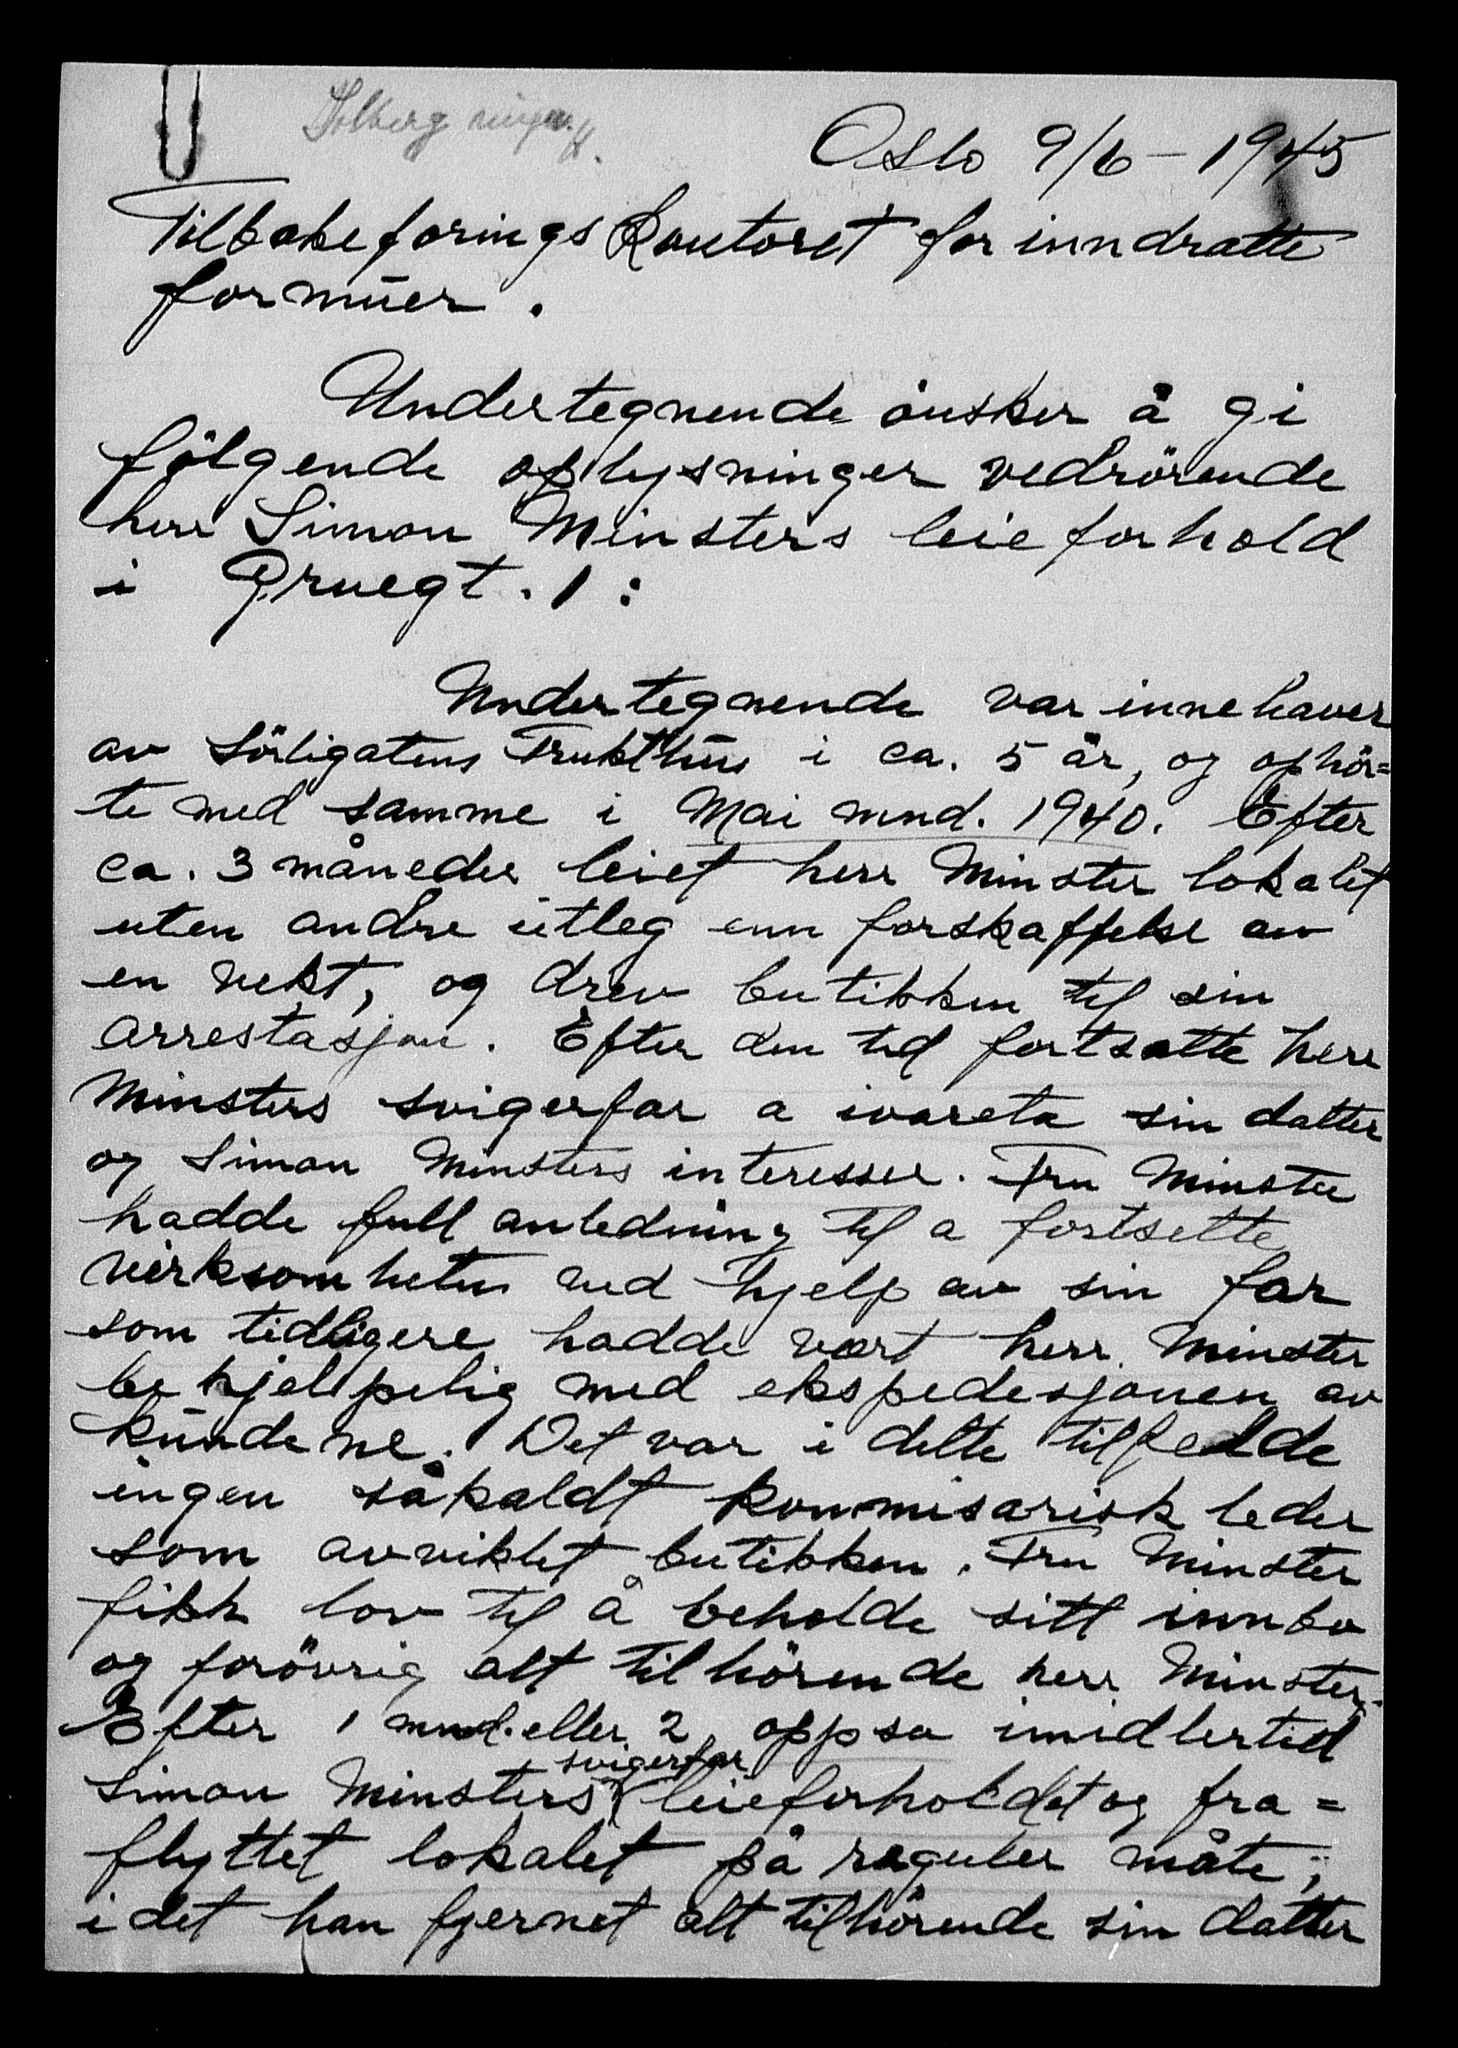 Solberg
Oslo 9/6 - 1945
Tilbakeførings Kontoret for inndratte
formuer.
Undertegnende ønsker å gi
følgende oplysninger vedrörende
herr Simon Minsters leieforhold
i Gruegt. 1:
Undertegnende var innehaver
av Sörligatens Frukthus i ca. 5 år, og ophör=
te med samme i Mai mnd. 1940. Efter
ca. 3 måneder leiet herr Minster lokalet
uten andre utleg enn forskaffelse av
en vekt, og drev butikken til sin
arrestasjon. Efter den tid fortsatte herr
Minsters svigerfar a ivareta sin datter
og Simon Minsters interesser. Fru Minster
hadde full anledning til a fortsette
virksomheten ved hjelp av sin far
som tidligere hadde vært herr Minster
behjelpelig med ekspedesjonen av
kundene. Det var i dette tilfelde
ingen såkaldt kommisarisk leder
som avviklet butikken. Fru Minster
fikk lov til å beholde sitt innbo
og forövrig alt tilhörende herr Minster.
Efter 1 mnd. eller 2 oppsa imidlertid
svigerfar
Simon Minsters leieforholdet og fra=
flyttet lokalet på reguler måte,
i det han fjernet alt tilhörende sin datter